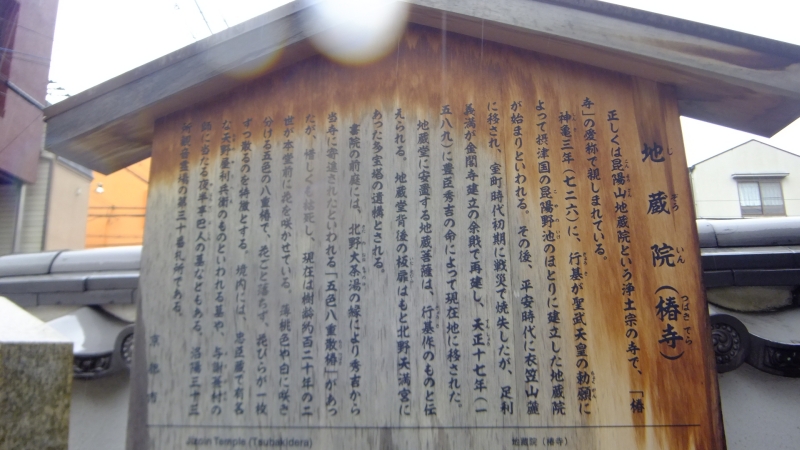 地蔵院(椿寺)
じ ぞう いん つばき でら
正しくは昆陽山地蔵院という浄土宗の寺で、「椿
寺」の愛称で親しまれている。
神亀三年(七二六)に、行基が聖武天皇の勅願に
よって摂津国の昆陽野池のほとりに建立した地蔵院
が始まりといわれる。その後、平安時代に衣笠山麓
に移され、室町時代初期に戦災で焼失したが、足利
義満が金閣寺建立の余財で再建し、天正十七年(一
五八九)に豊臣秀吉の命によって現在地に移された。
地蔵堂に安置する地蔵菩薩は、行基作のものと伝
えられる。地蔵堂背後の板扉はもと北野天満宮に
あった多宝塔の遺構とされる。
書院の前庭には、北野大茶湯の縁により秀吉から
当寺に寄進されたといわれる「五色八重散椿」があっ
たが、惜しくも枯死し、現在は樹齢約百二十年の二
世が本堂前に花を咲かせている。薄桃色や白に咲き
分ける五色の八重椿で、花ごと落ちず、花びらが一枚
ずつ散るのを特徴とする。境内には、忠臣蔵で有名
な天野屋利兵衛のものといわれる墓や、与謝蕪村の
師にあたる夜半亭巴人の墓などもある。洛陽三十三
所観音霊場の第三十番札所である。
京都市
Jizoin Temple (Tsubakidera)
地蔵院(椿寺)